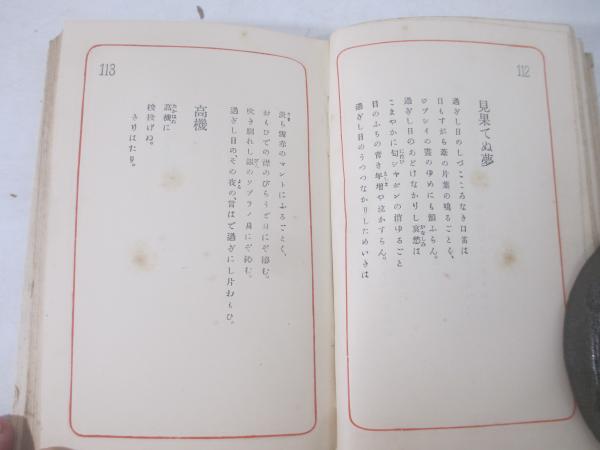 112
見果てぬ夢
過ぎし日のしづこころなき口笛は
日もすがら葦の片葉の鳴るごとく、
ジプシイの雲のゆめにも顫ふらん。
過ぎし日のあどけなかりし哀愁は
こまやかに匂シヤボンの消ゆるごと
目のふちの青き年増や泣かすらん。
過ぎし日のうつつなかりしためいきは
113
淡ら雪赤のマントにふるごとく、
おもひでの襟のびらうど身にぞ沁む。
吹き馴れし銀のソプラノ身にぞ沁む。
過ぎし日のその夜の言はで過ぎにし片おもひ。
高機
高機に
梭投げぬ。
きりはたり。